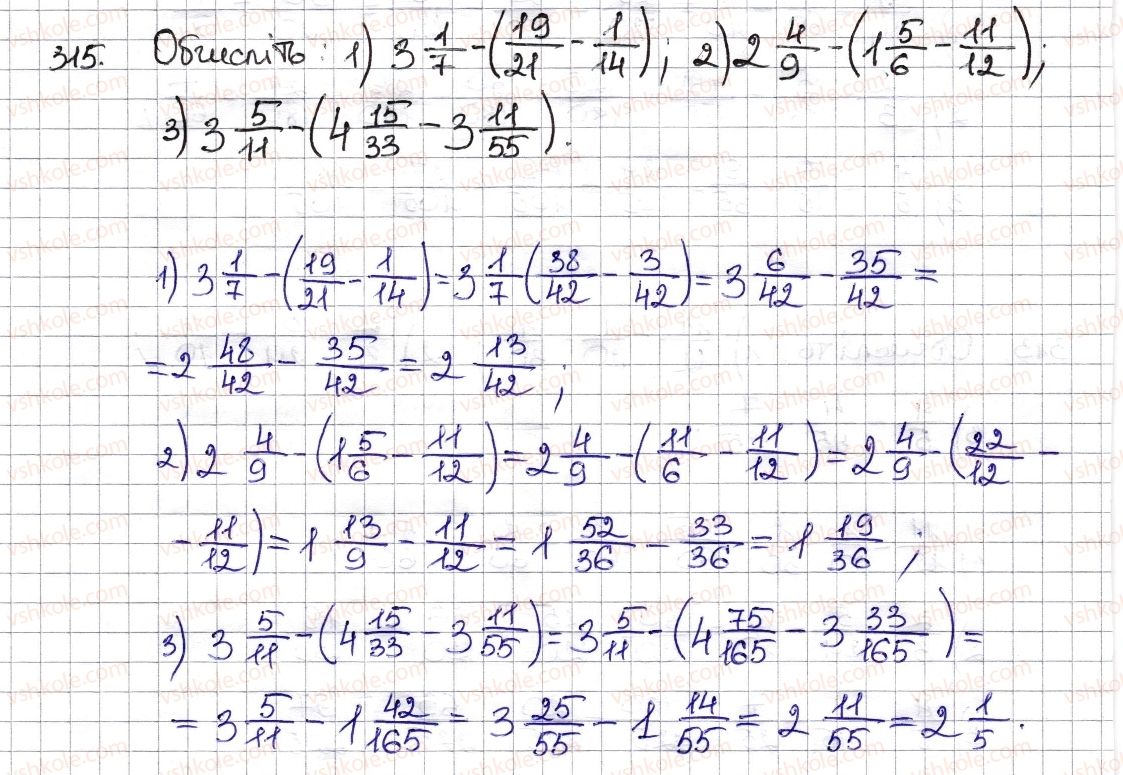 315. Обчисліть: 1) 3 1/7 - (19/21 - 1/14); 2) 2 4/9 - (1 5/6 - 11/12);
3) 3 5/11 - (4 15/33 - 3 11/55).
1) 3 1/7 - (19/21 - 1/14) = 3 1/7 (38/42 - 3/42) = 3 6/42 - 35/42 =
= 2 48/42 - 35/42 = 2 13/42;
2) 2 4/9 - (1 5/6 - 11/12) = 2 4/9 - (11/6 - 11/12) = 2 4/9 - (22/12 -
- 11/12) = 1 13/9 - 11/12 = 1 52/36 - 33/36 = 1 19/36;
3) 3 5/11 - (4 15/33 - 3 11/55) = 3 5/11 - (4 75/165 - 3 33/165) =
= 3 5/11 - 1 42/165 = 3 25/55 - 1 14/55 = 2 11/55 = 2 1/5.